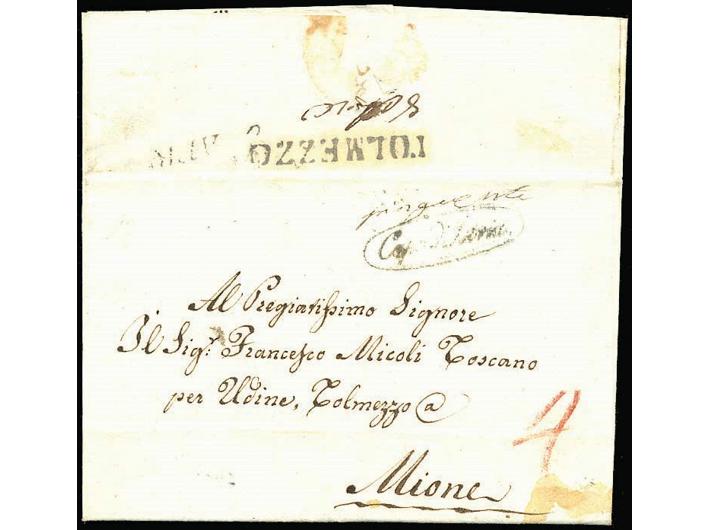 TOLMEZZO
pinguente
Capo d'Istria.
Al Pregiatissimo Signore
Il Sig.r Francesco Micoli Toscano
per Udine, Tolmezzo a
Mione
4